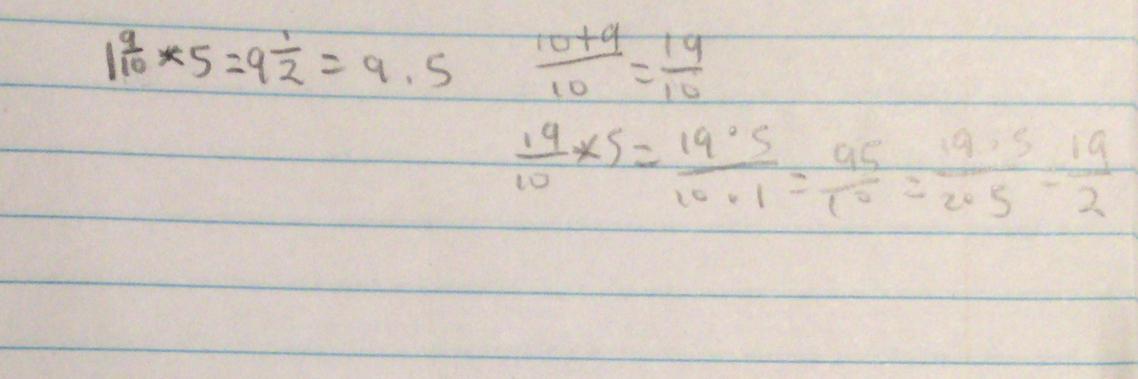 1 9/10 * 5 = 9 1/2 = 9.5
(10+9)/10 = 19/10
19/10 * 5 = (19·5)/(10·1) = 95/10 = (19·5)/(2·5) = 19/2